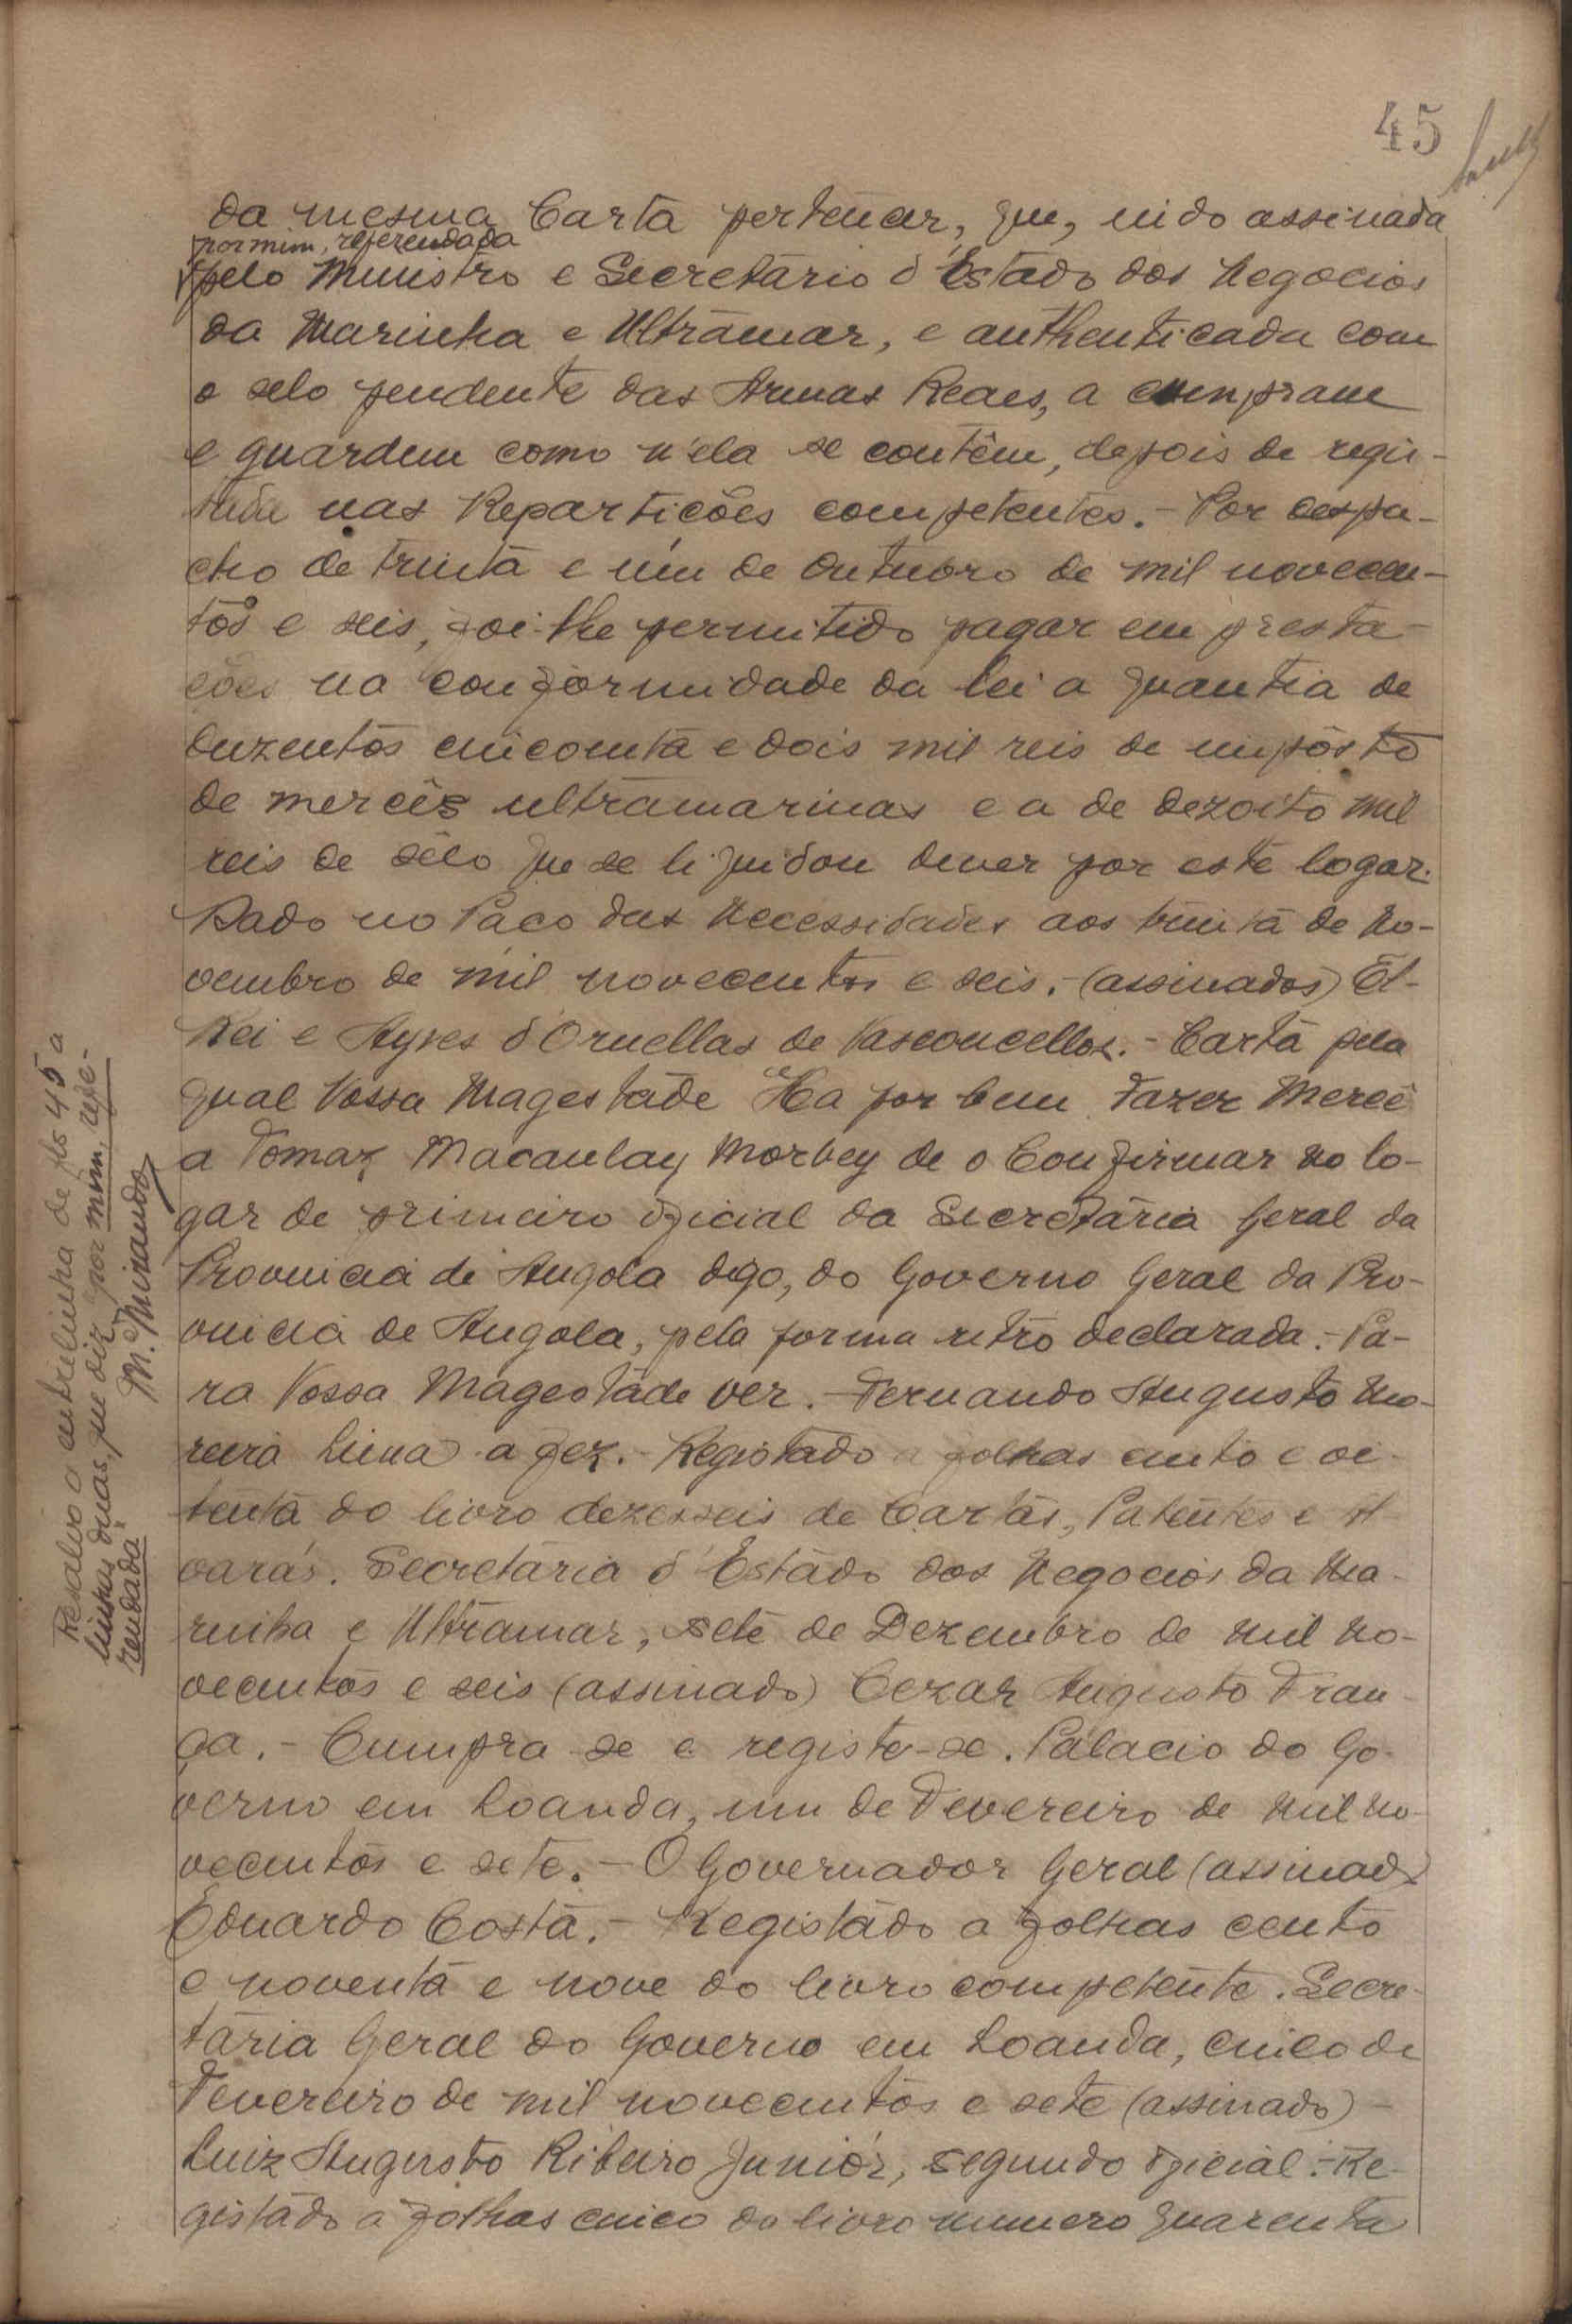 45
da mesma Carta pertencer, que, indo assinada
por mim, referendada
pelo Ministro e Secretário d'Estado dos Negocios
da Marinha e Ultramar, e authenticada com
o selo pendente das Armas Reaes, a cumpram
e guardem como n'ela se contêm, depois de regis-
tada nas Repartições competentes.- Por despa-
cho de trinta e um de Outubro de mil novecen-
tos e seis, foi-lhe permitido pagar em presta-
ções na conformidade da lei a quantia de
duzentos cincoenta e dois mil reis de impôsto
de mercês ultramarinas e a de dezoito mil
reis de sêlo que se liquidou dever por este logar.
Dado no Paço das Necessidades aos trinta de No-
vembro de mil novecentos e seis.- (assinados) El-
Rei e Ayres d'Ornellas de Vasconcellos.- Carta pela
qual Vossa Magestade Ha por bem Fazer Mercê
a Tomaz Macaulay Morbey de o Confirmar no lo-
gar de primeiro oficial da Secretaria Geral da
Provincia de Angola digo, do Governo Geral da Pro-
vincia de Angola, pela forma retro declarada.- Pa-
ra Vossa Magestade ver.- Fernando Augusto Mo-
reira Lima a fez.- Registado a folhas cento e oi-
tenta do livro dezesseis de Cartas, Patentes e Al-
varás. Secretaria d'Estado dos Negocios da Ma-
rinha e Ultramar, sete de Dezembro de mil no-
vecentos e seis (assinado) Cezar Augusto Fran-
ça.- Cumpra-se e registe-se. Palacio do Go-
verno em Loanda, um de Fevereiro de mil no-
vecentos e sete.- O Governador Geral (assinado)
Eduardo Costa.- Registado a folhas cento
e noventa e nove do livro competente. Secre-
taria Geral do Governo em Loanda, cinco de
Fevereiro de mil novecentos e sete (assinado)-
Luiz Augusto Ribeiro Junior, segundo oficial.- Re-
gistado a folhas cinco do livro numero quarenta
Resalvo a entrelinha de fls 45 a
linhas duas, que diz "por mim, refe-
rendada"
M. Mirando